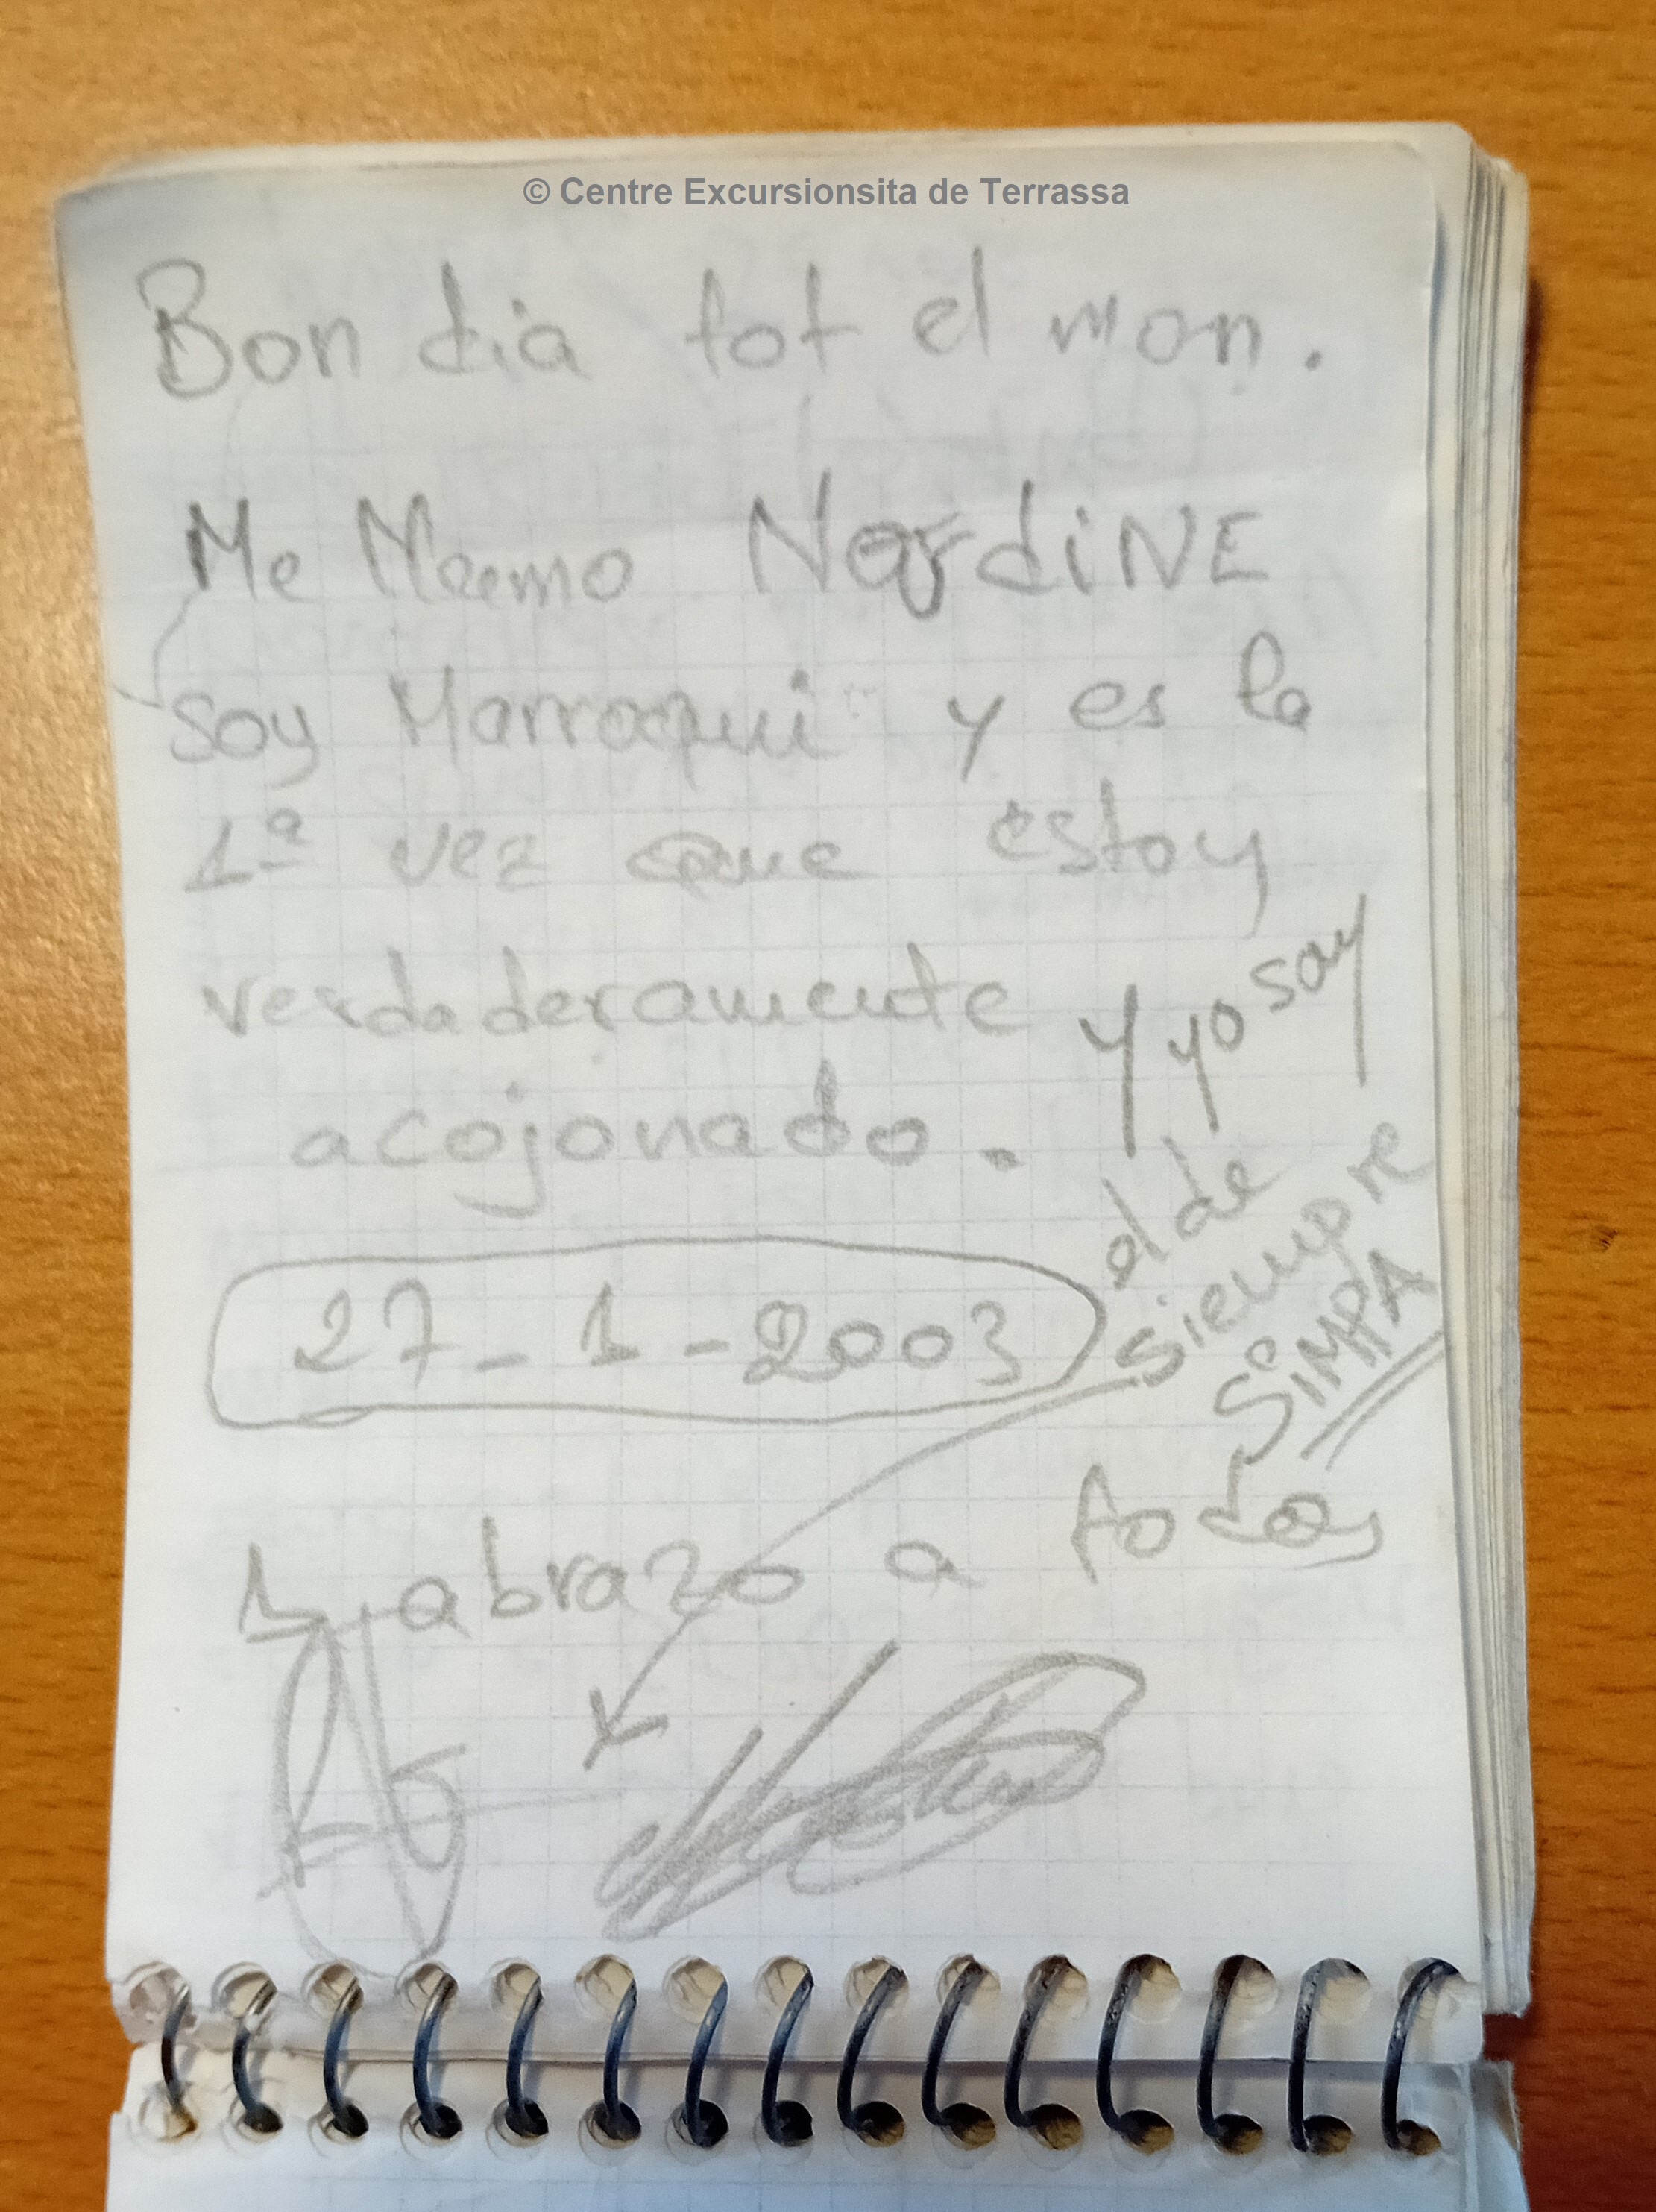 © Centre Excursionsita de Terrassa
Bon dia tot el mon.
Me Mamo NordiNE
soy Marroqui y es la
1ª vez que estoy
verdaderamente
acojonado.
27-1-2003
y yo soy
el de
siempre
SiMPA
1 abrazo a todos